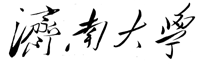 濟南大學